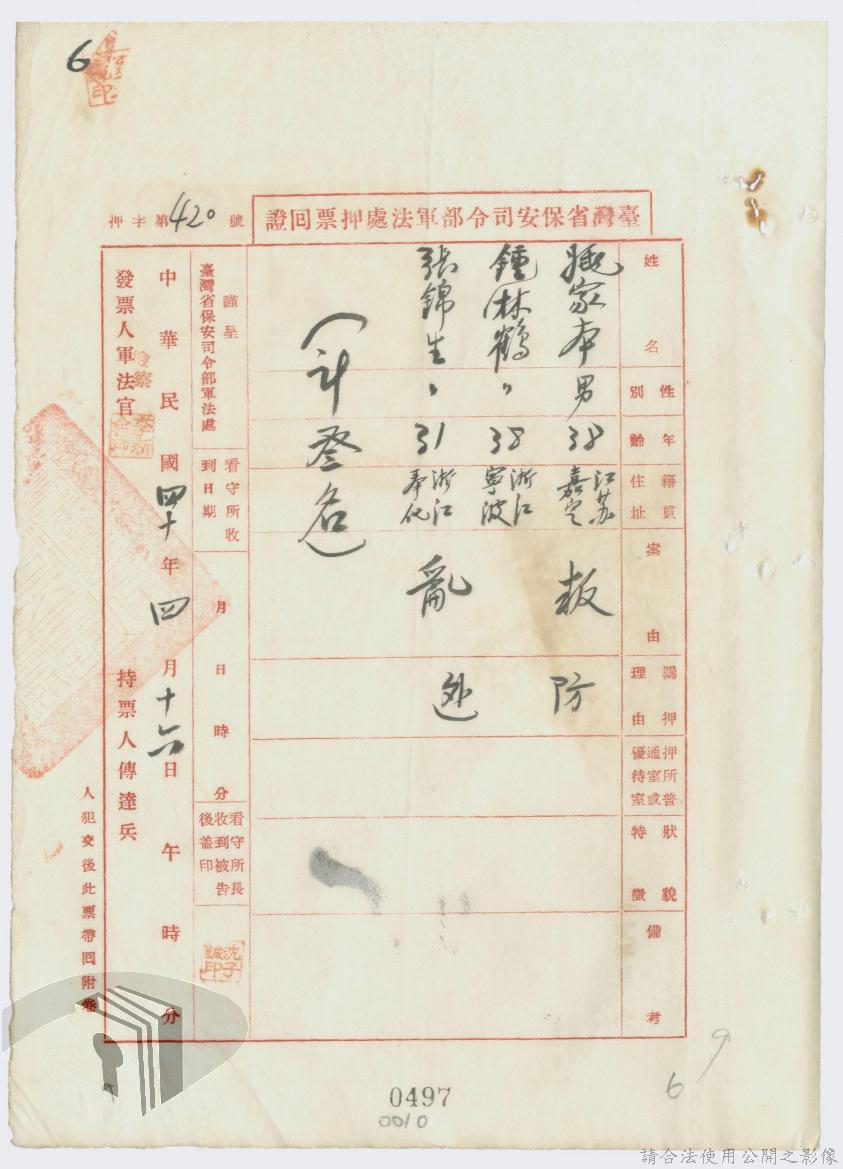 6
臺灣省保安司令部軍法處押票回證
押字第420號
姓名
性別
年齡
籍貫
住址
案由
羈押
理由
押所普
通室或
優待室
狀貌
特徵
備考
家本 男 38 江苏嘉定
鍾林鶴 〃 38 浙江寧波
張錦生 〃 31 浙江奉化
叛亂
防逃
(計叄名)
謹呈
臺灣省保安司令部軍法處
看守所收
到日期
月日時分
看守所長
收到被告
後盖印
沈子誠印
中華民國四十年四月十六日午時分
發票人軍法官
持票人傳達兵
人犯交後此票帶回附卷
0497
0010
6
9
請合法使用公開之影像